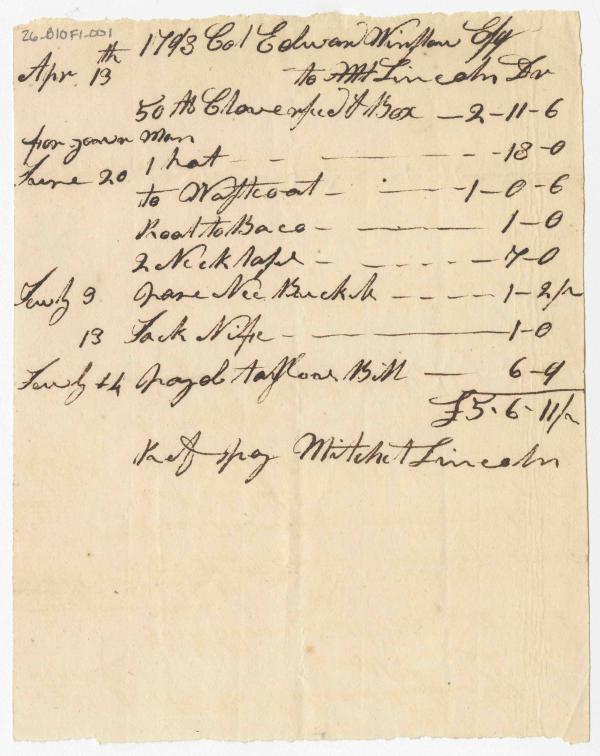 26-B10F1-001
1793 Col Edwar Winslow Esq
Apr 13th to Mt Lincoln Dr
50 lb Clover &  Box — 2-11-6
for your man
June 20 1 hat - - — - 18-0
to Wastcoat - - — 1-0-6
Root to Baco - — 1-0
2 Neck - — 7-0
9 pare Nee Buckl - - - - 1-2/2
13 Jack Nife - — 1-0
24 payd taylors Bill — 6-9
£5-6-11/2
Mitchel Lincoln